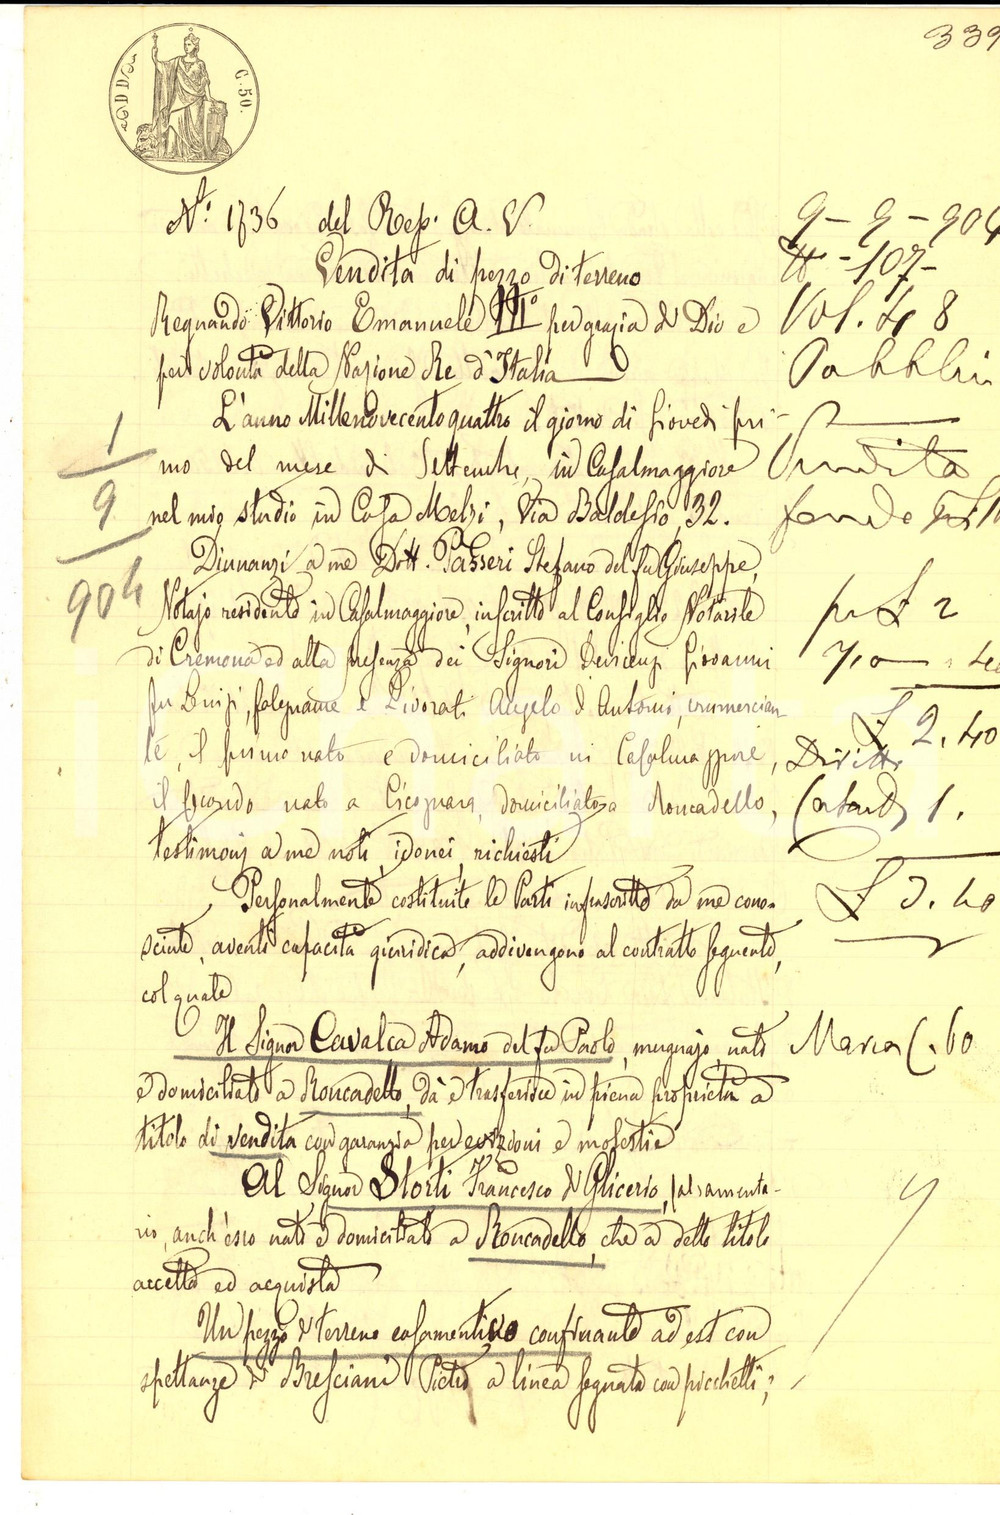 339
C. 50.
N.° 1736 del Rep. A. V.
Vendita di pezzo di terreno
Regnando Vittorio Emanuele III° per grazia di Dio e
per volontà della Nazione Re d'Italia
L'anno Millenovecentoquattro il giorno di Giovedì pri-
mo del mese di Settembre, in Casalmaggiore
nel mio studio in Casa Melzi, Via Baldesio, 32.
Dinnanzi a me Dott. Passeri Stefano del fu Giuseppe,
Notajo residente in Casalmaggiore, inscritto al Consiglio Notarile
di Cremona ed alla presenza dei Signori Giovanni
fu Luigi, falegname e Livorati Angelo di Antonio, commercian-
te, il primo nato e domiciliato in Casalmaggiore,
il secondo nato a Cicognara, domiciliato a Roncadello,
testimonj a me noti, idonei, richiesti
Personalmente costituite le Parti infrascritte da me cono-
sciute, aventi capacità giuridica, addivengono al contratto seguente,
col quale
Il Signor Cavalca Adamo del fu Paolo, mugnajo, nato
e domiciliato a Roncadello, dà e trasferisce in piena proprietà a
titolo di vendita con garanzia per evizioni e molestie
Al Signor Storti Francesco di Glicerio, salsamenta-
rio, anch'esso nato e domiciliato a Roncadello, che a detto titolo
accetta ed acquista
Un pezzo di terreno casamentivo confinante ad est con
spettanze di Bresciani Pietro a linea segnata con picchetti;
1
9
904
9 - 9 - 904
N - 107 -
Vol. 48
Pubblici
Vendita
fondo
per £ 2
£ 2.40
Diritti
Catast 1.
£ 3.40
Marca C. 60